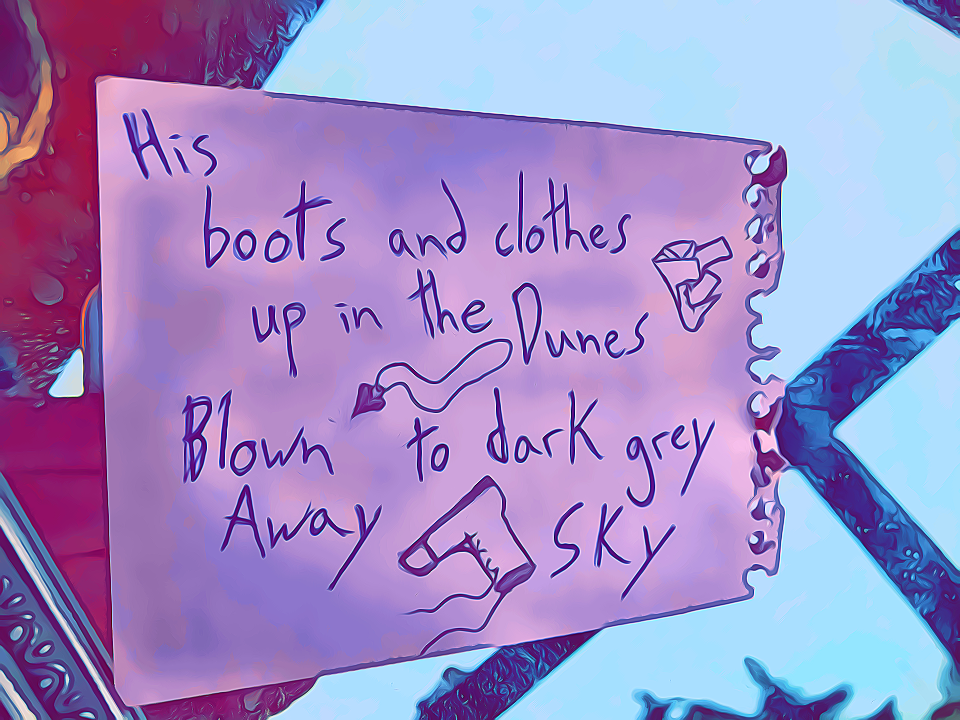 His
boots and clothes
up in the Dunes
Blown to dark grey
Away SKy